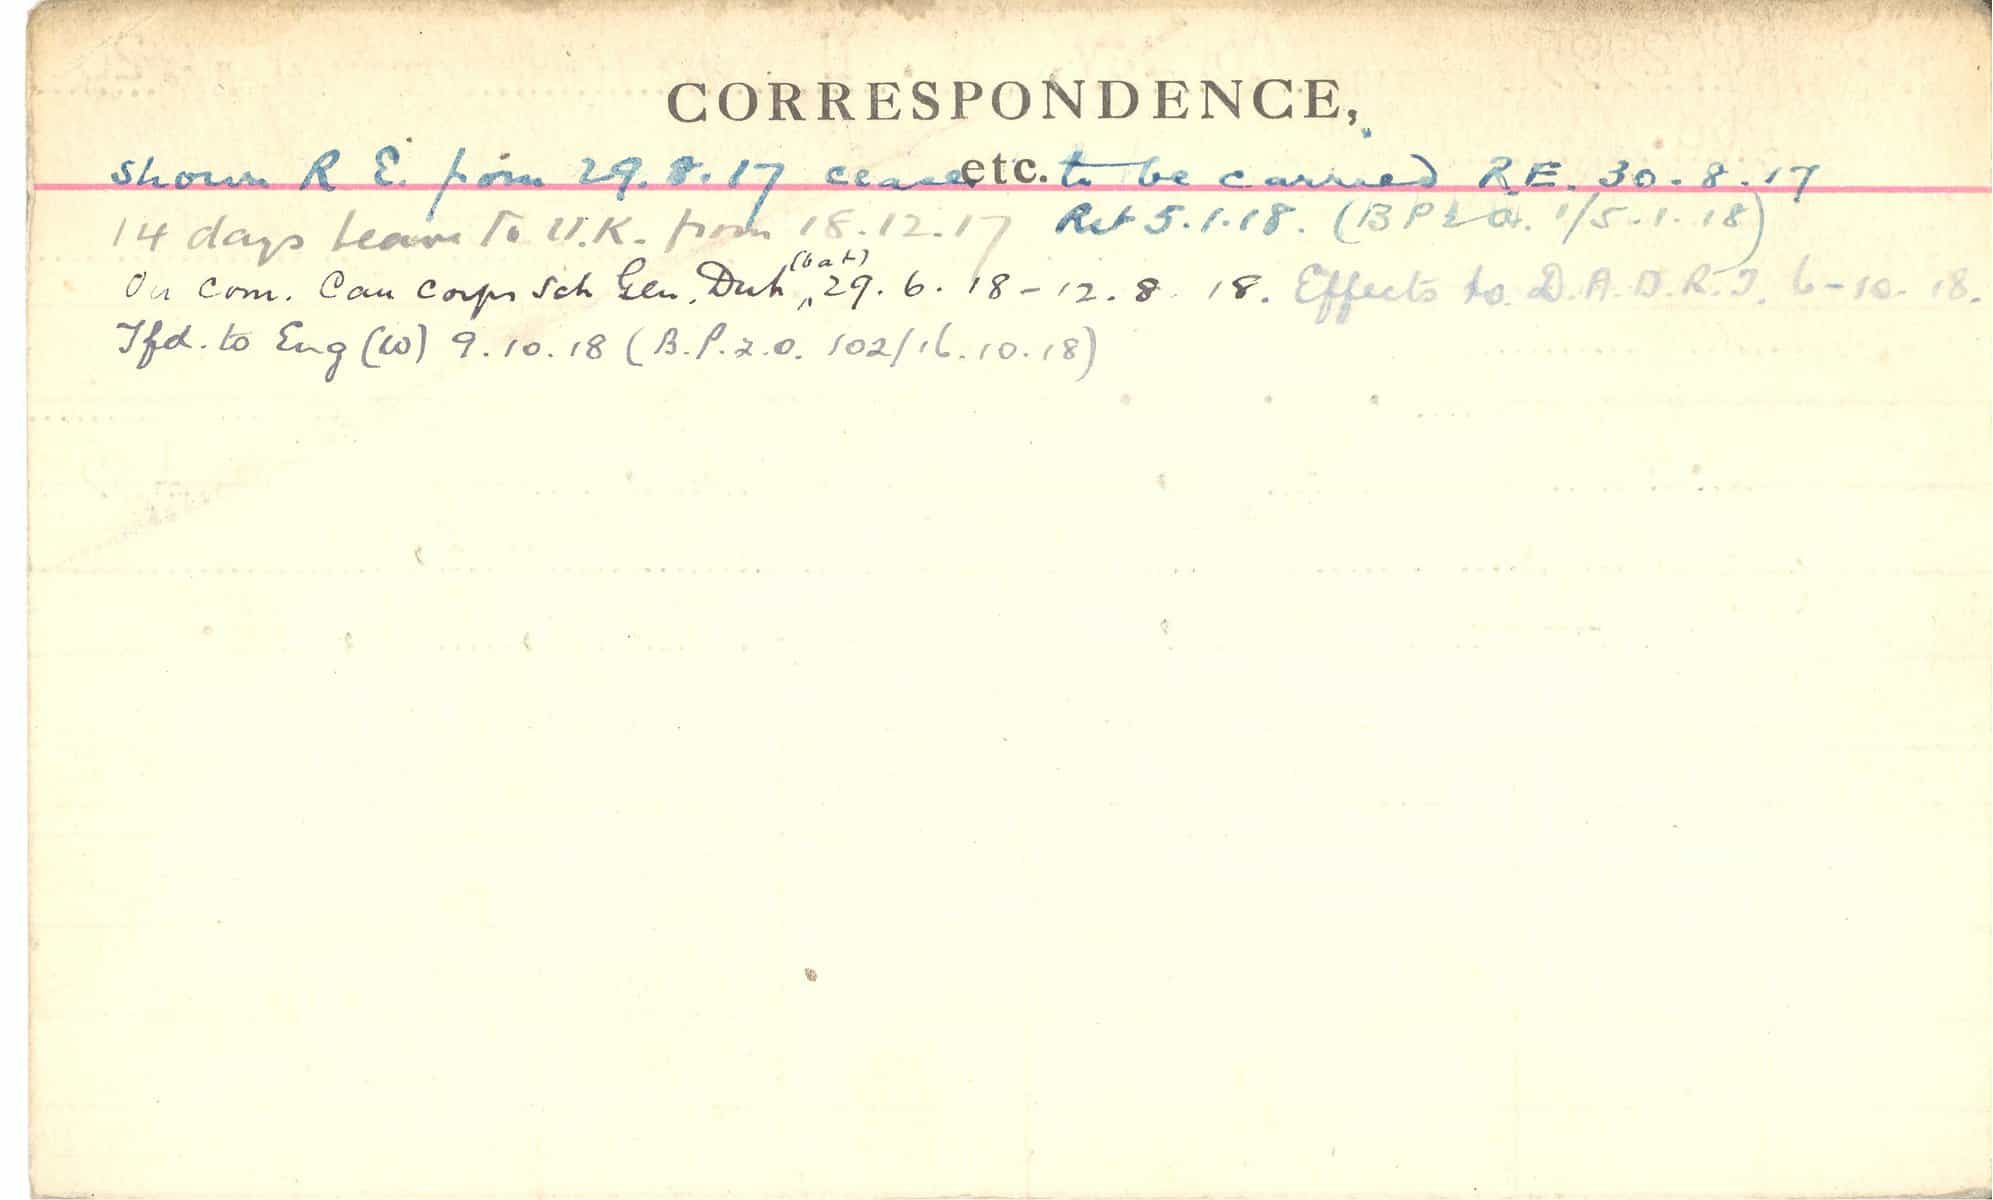 CORRESPONDENCE,
etc.
Shown R E. from 29.8.17 cease to be carried R.E. 30.8.17
14 days leave to U.K. from 18.12.17 Ret 5.1.18. (B P 2 O. 1/5.1.18)
On com. Can Corps Sch Gen. Dut (bat) 29.6.18-12.8.18. Effects to D.A.D.R.T. 6-10-18.
Tfd. to Eng (W) 9.10.18 (B.P.2.O. 102/16.10.18)